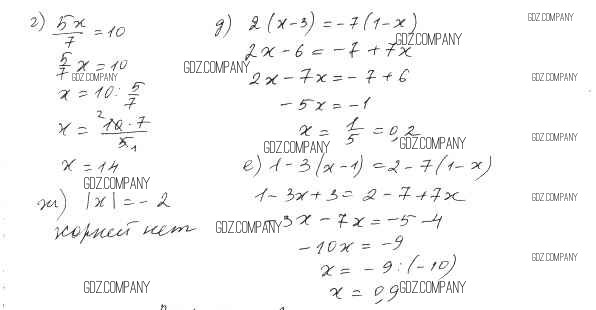 г) 5x/7 = 10
5/7 x = 10
x = 10 : 5/7
x = 10 · 7 / 5
x = 14
ж) |x| = - 2
корней нет
д) 2(x-3) = -7(1-x)
2x - 6 = -7 + 7x
2x - 7x = -7 + 6
-5x = -1
x = 1/5 = 0,2
е) 1 - 3(x-1) = 2 - 7(1-x)
1 - 3x + 3 = 2 - 7 + 7x
-3x - 7x = -5 - 4
-10x = -9
x = -9 : (-10)
x = 0,9
GDZ.COMPANY
GDZ.COMPANY
GDZ.COMPANY
GDZ.COMPANY
GDZ.COMPANY
GDZ.COMPANY
GDZ.COMPANY
GDZ.COMPANY
GDZ.COMPANY
GDZ.COMPANY
GDZ.COMPANY
GDZ.COMPANY
GDZ.COMPANY
GDZ.COMPANY